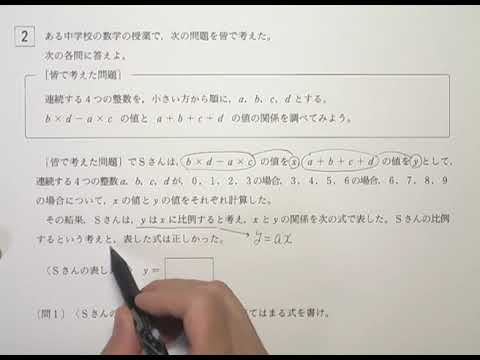 2 ある中学校の数学の授業で，次の問題を皆で考えた。
次の各問に答えよ。
［皆で考えた問題］
連続する４つの整数を，小さい方から順に，a，b，c，d とする。
b×d－a×c の値と a＋b＋c＋d の値の関係を調べてみよう。
［皆で考えた問題］でＳさんは，b×d－a×c の値を x，a＋b＋c＋d の値を y として，
連続する４つの整数 a，b，c，d が，０，１，２，３の場合，３，４，５，６の場合，６，７，８，９
の場合について，x の値と y の値をそれぞれ計算した。
その結果，Ｓさんは，y は x に比例すると考え，x と y の関係を次の式で表した。Ｓさんの比例
するという考えと，表した式は正しかった。 y=ax
〈Ｓさんの表し y＝
［問１］〈Ｓさんの てはまる式を書け。